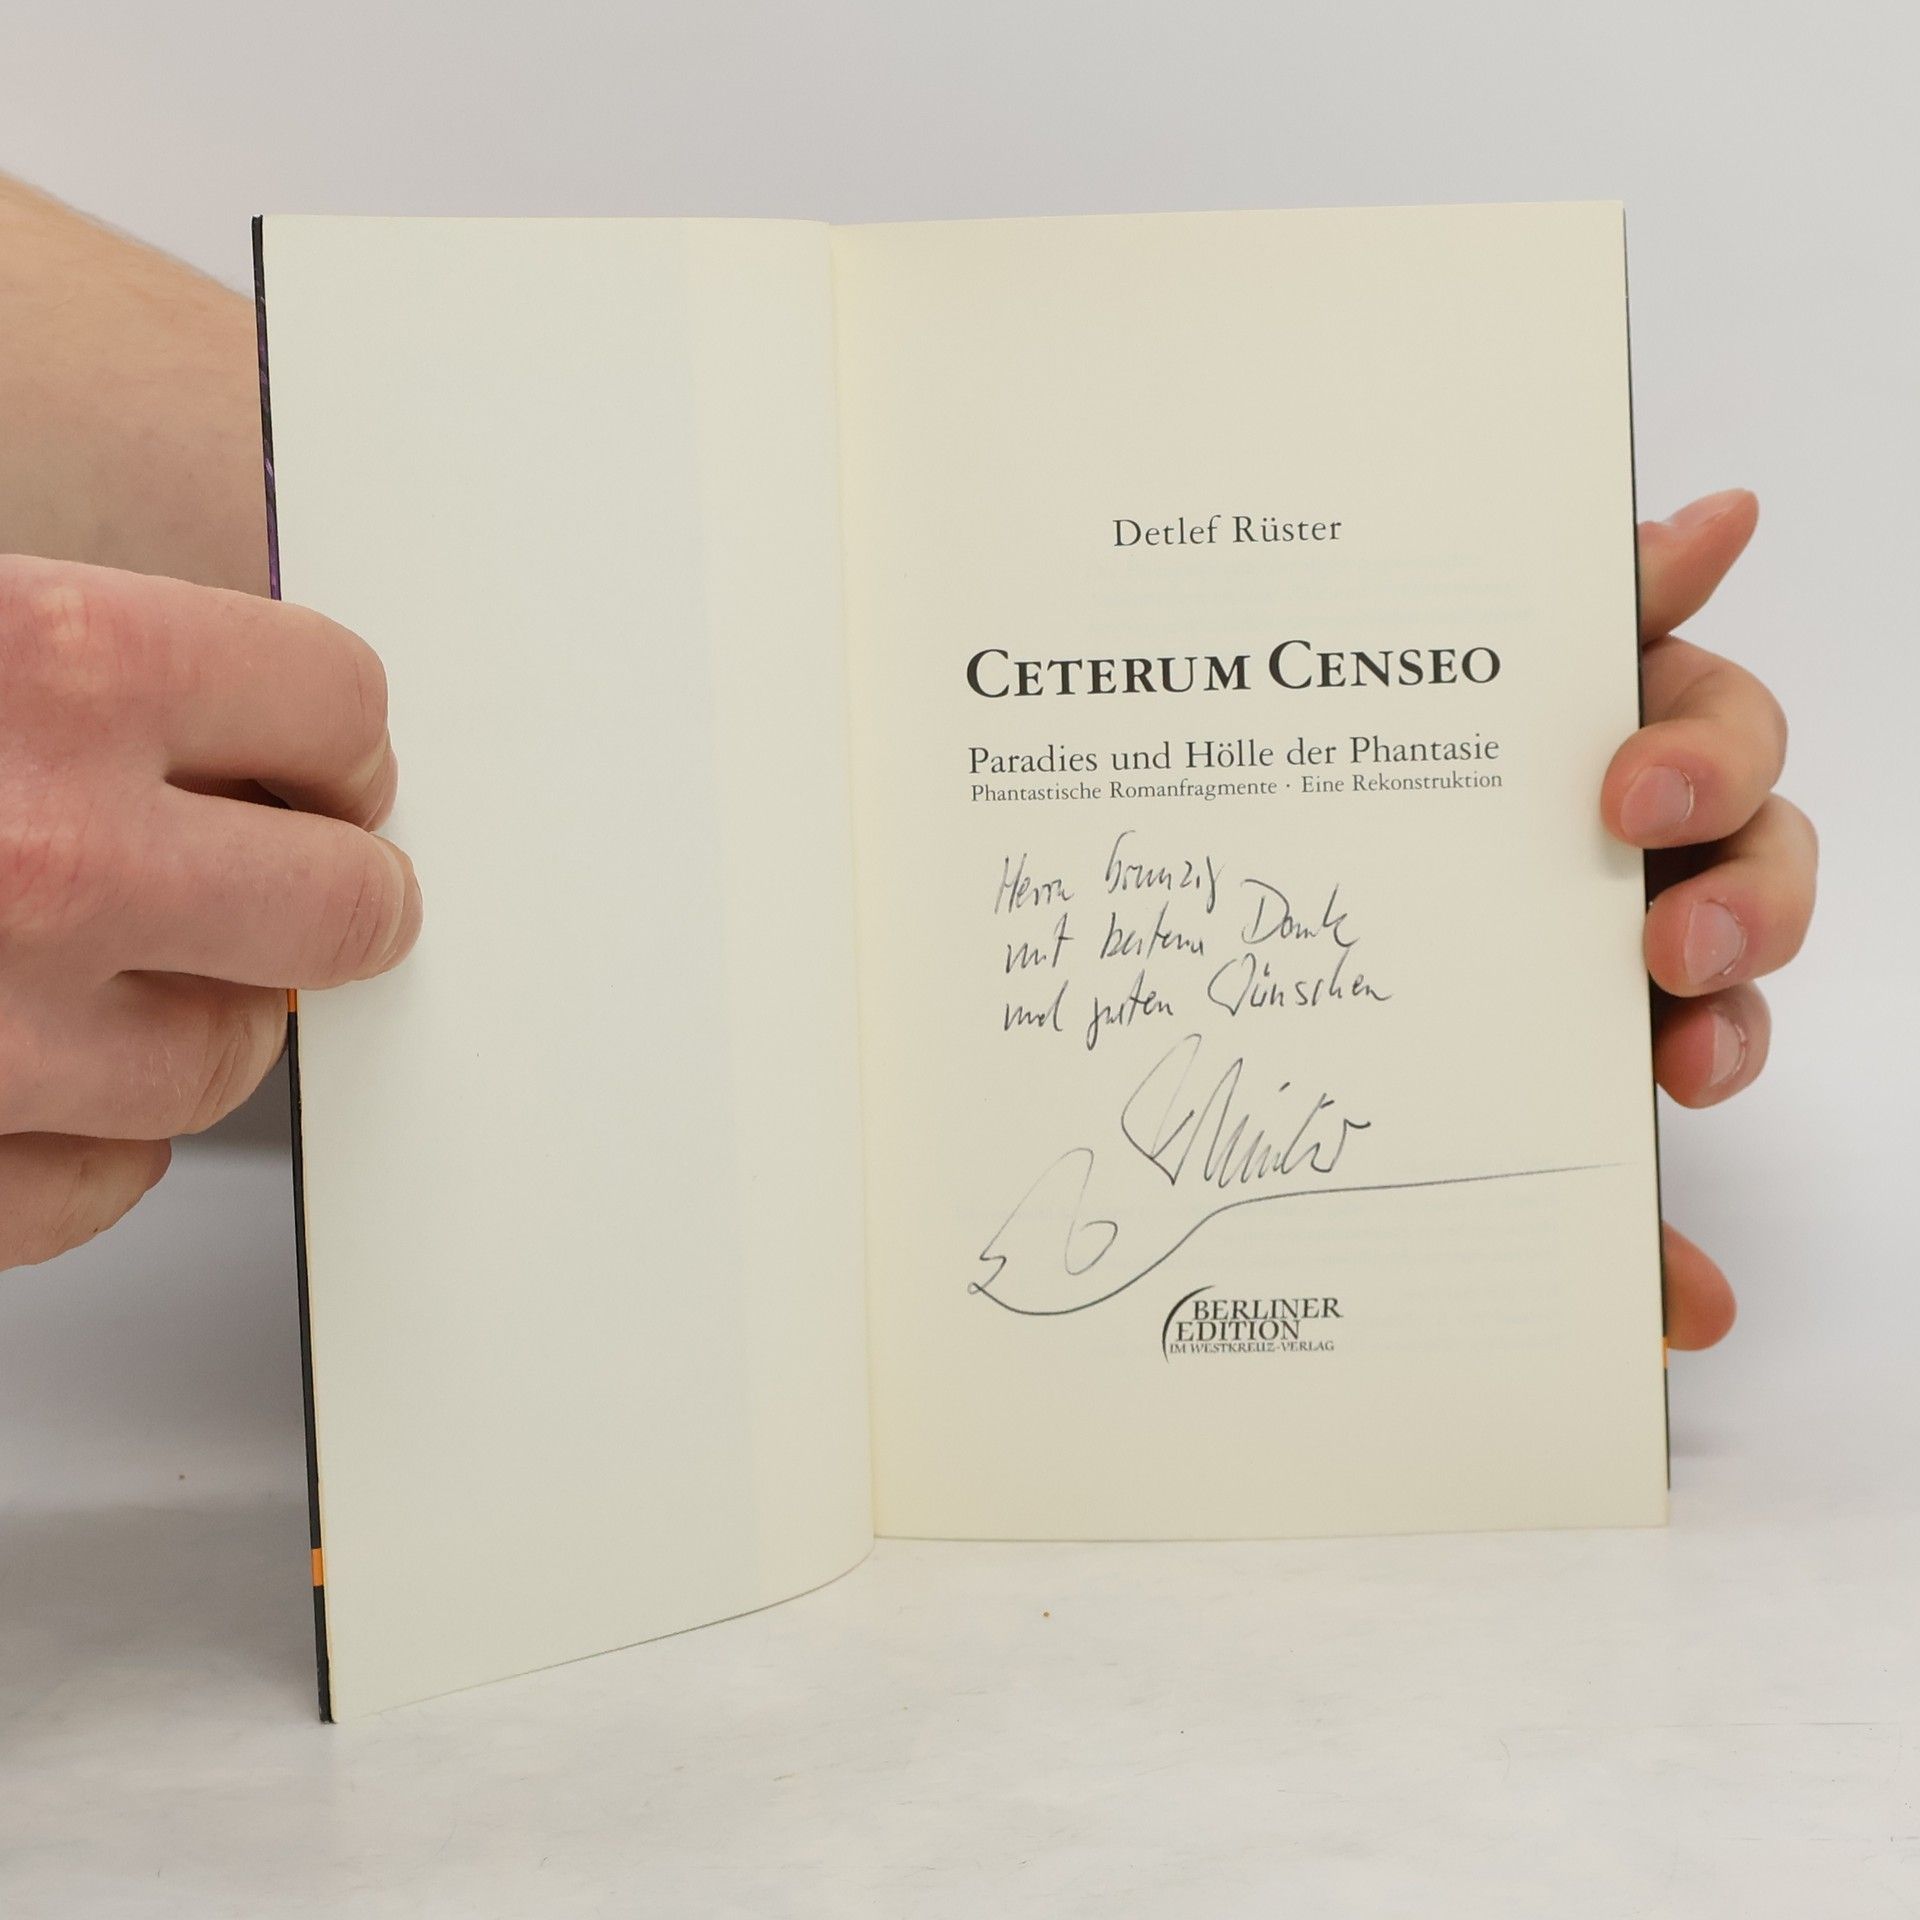 Detlef Rüster
CETERUM CENSEO
Paradies und Hölle der Phantasie
Phantastische Romanfragmente · Eine Rekonstruktion
Herrn
mit bestem Dank
und guten Wünschen
BERLINER
EDITION
IM WESTKREUZ-VERLAG